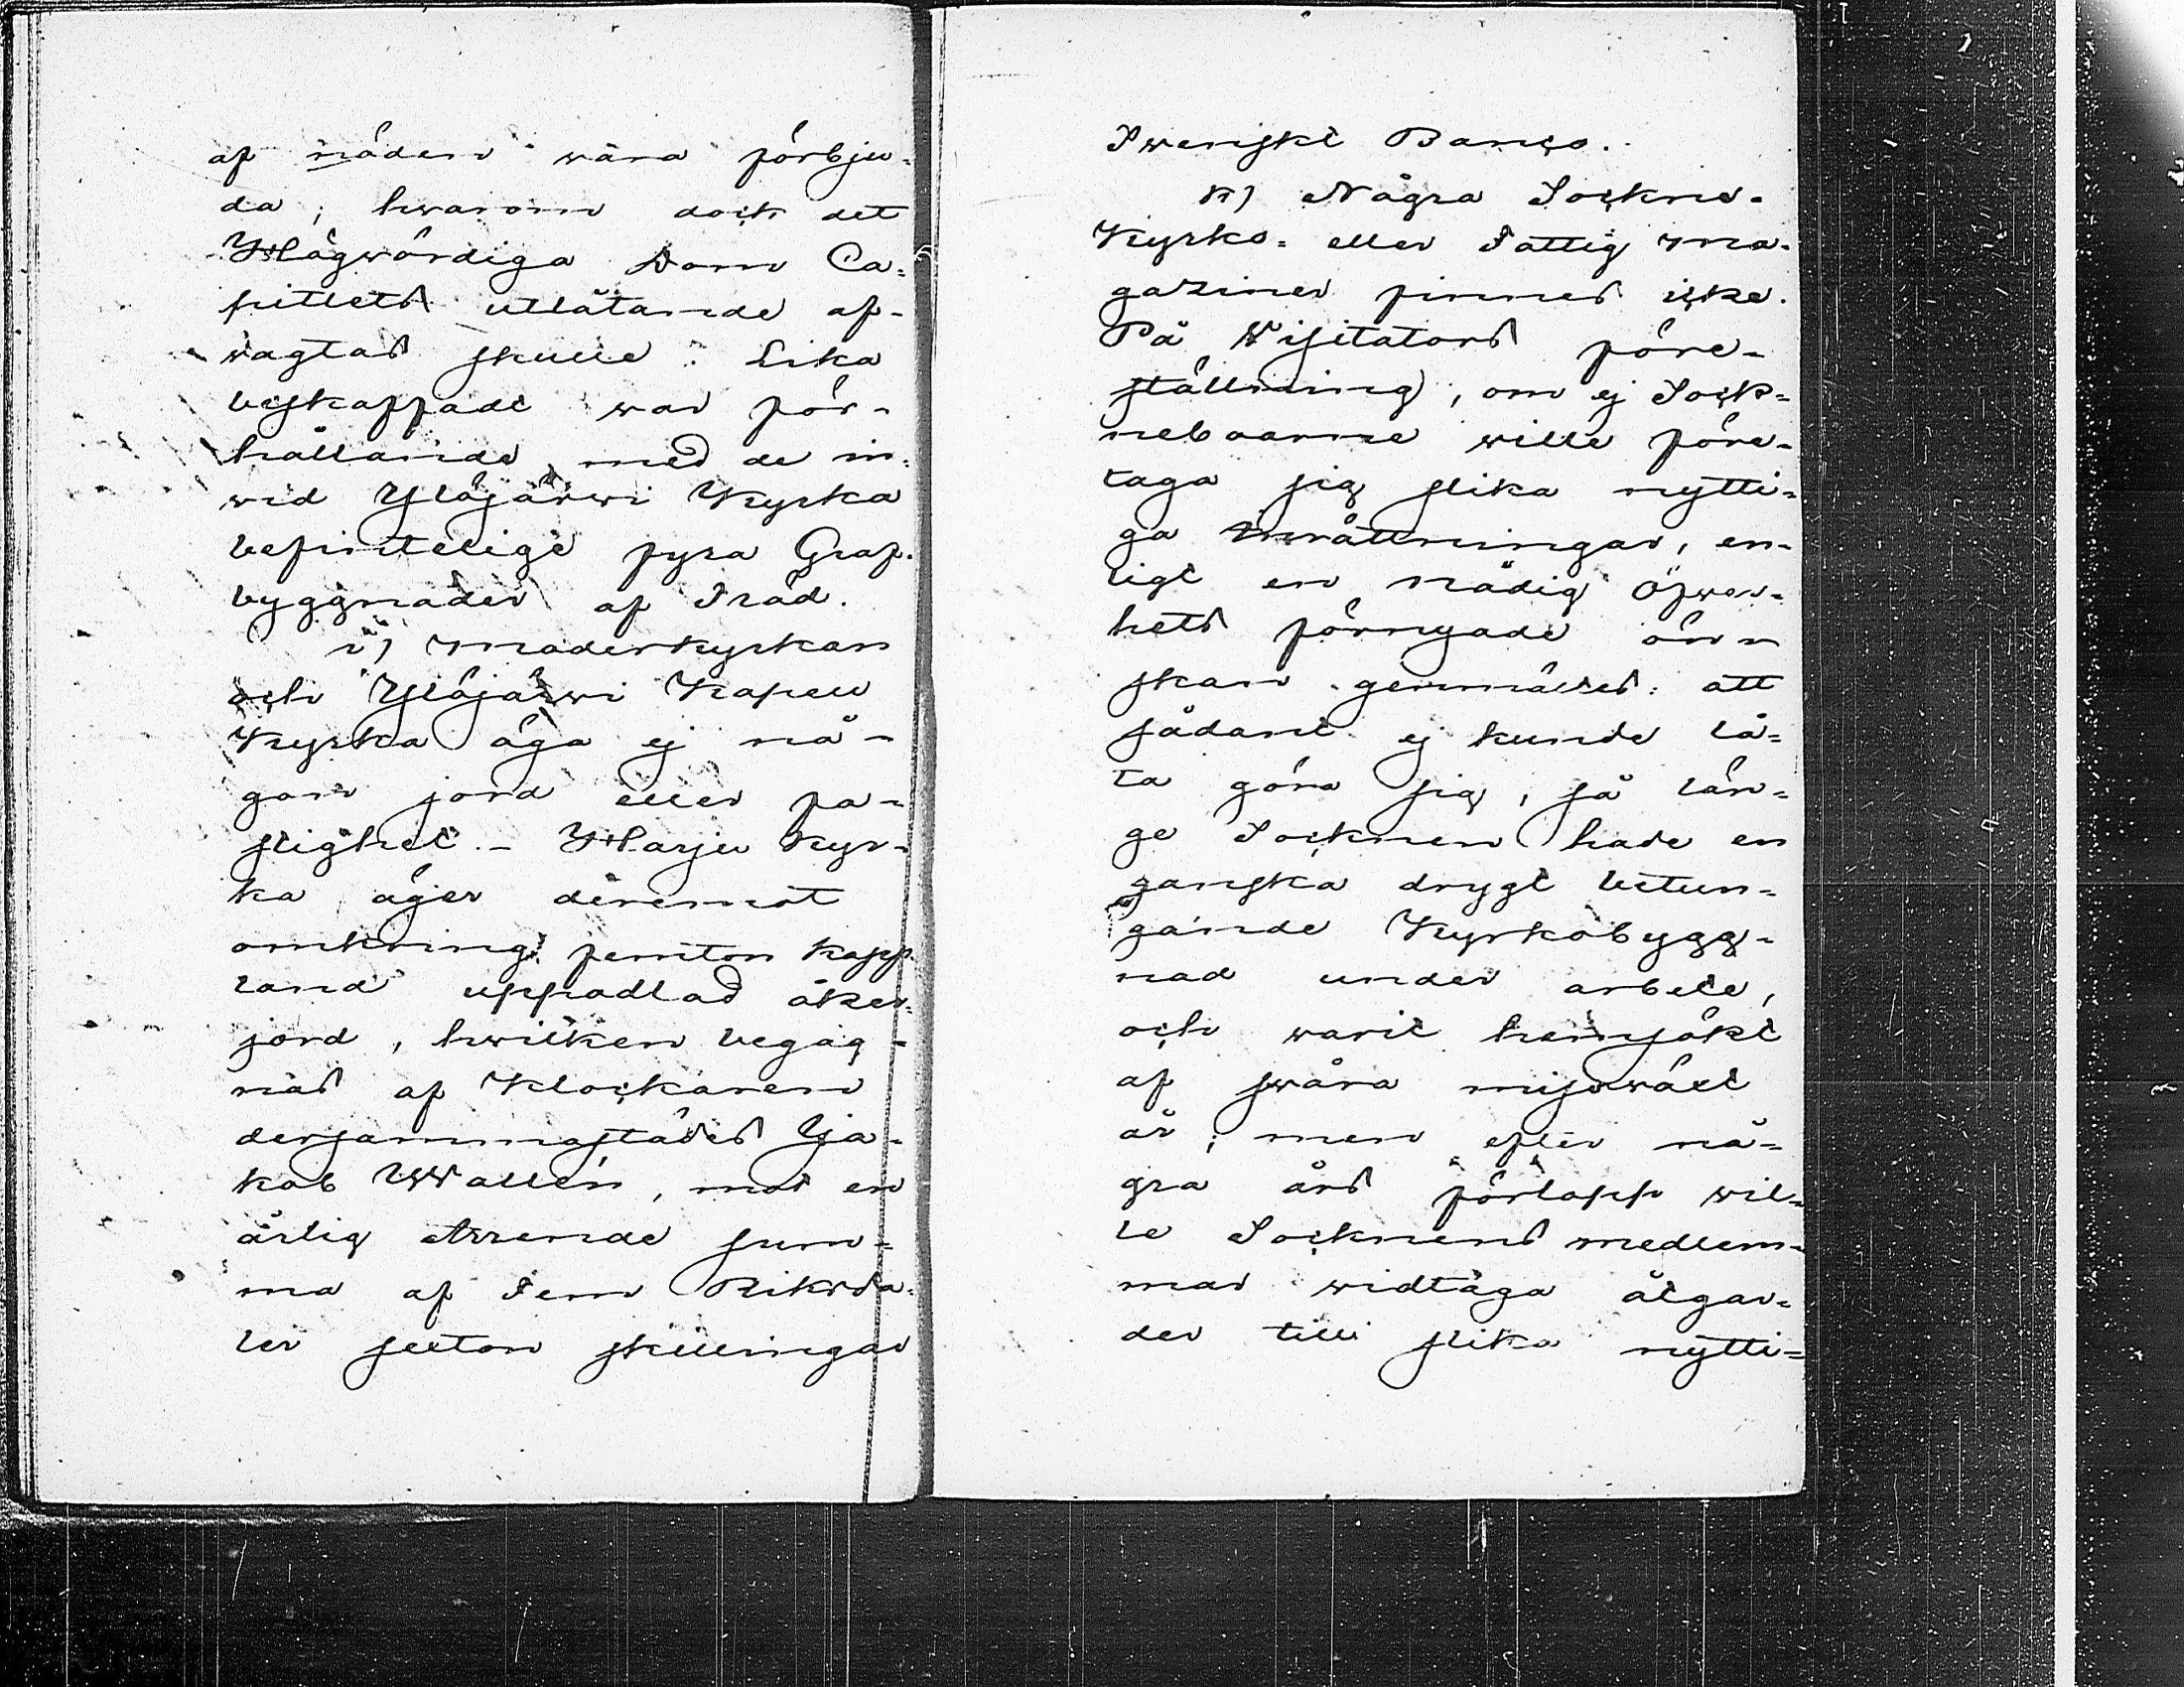 af nöden wara förbju-
da; hwarom dock det
Högwördiga Dom Ca-
pitlets utlåtande af-
wagtas skulle. Lika
beskaffadt war för-
hållande med de in-
wid Ylöjärwi Kyrka
befintelige fyra Graf-
byggnader af Träd.
i) Moderkyrkan
och Ylöjärwi Kapell
Kyrka äga ej nå-
gon jord eller fa-
stighet. - Harju Kyr-
ka äger deremot
omkring femton kapp-
land uppodlad åker-
jord, hwilken begag-
nas af Klockaren
dersammastädes Ja-
kob Wallén, mot en
årlig Arrende sum-
ma af Fem Riksda-
ler sexton skillingar
Swenskt Banco.
k) Några Sockne-
Kyrko- eller Fattig ma-
gaziner finnes icke.
På Wisitators före-
ställning, om ej Sock-
neboarne wille före-
taga sig slika nytti-
ga inrättningar, en-
ligt en nådig Öfwer-
hets förnyade ön-
skan genmältes: att
sådant ej kunde lå-
ta göra sig, så län-
ge Socknen hade en
ganska drygt betun-
gande Kyrkobygg-
nad under arbete,
och warit hemsökt
af swåra misswäxt
år; men efter nå-
gra års förlopp wil-
le Socknens medlem-
mar widtaga åtgär-
der till slika nytti-